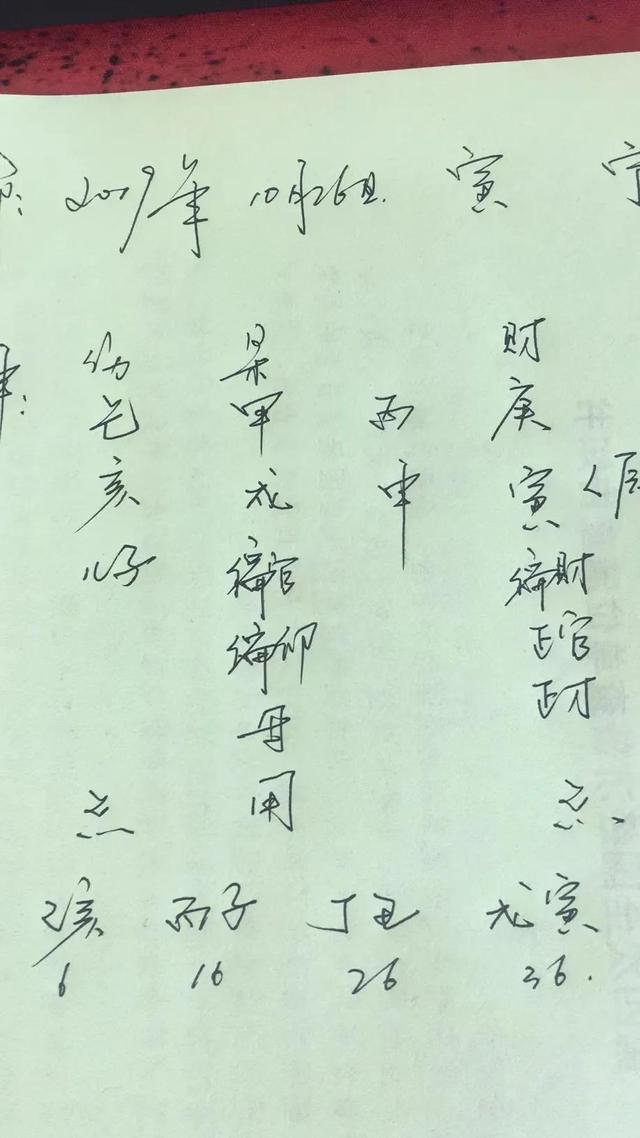 2019年 10月26日 寅
伤 枭 财
己 甲 丙 庚
亥 戌 申 寅
儿子 偏官 偏财
偏印 正官
母 正才
用
忌 忌
乙亥 丙子 丁丑 戊寅
6 16 26 36.